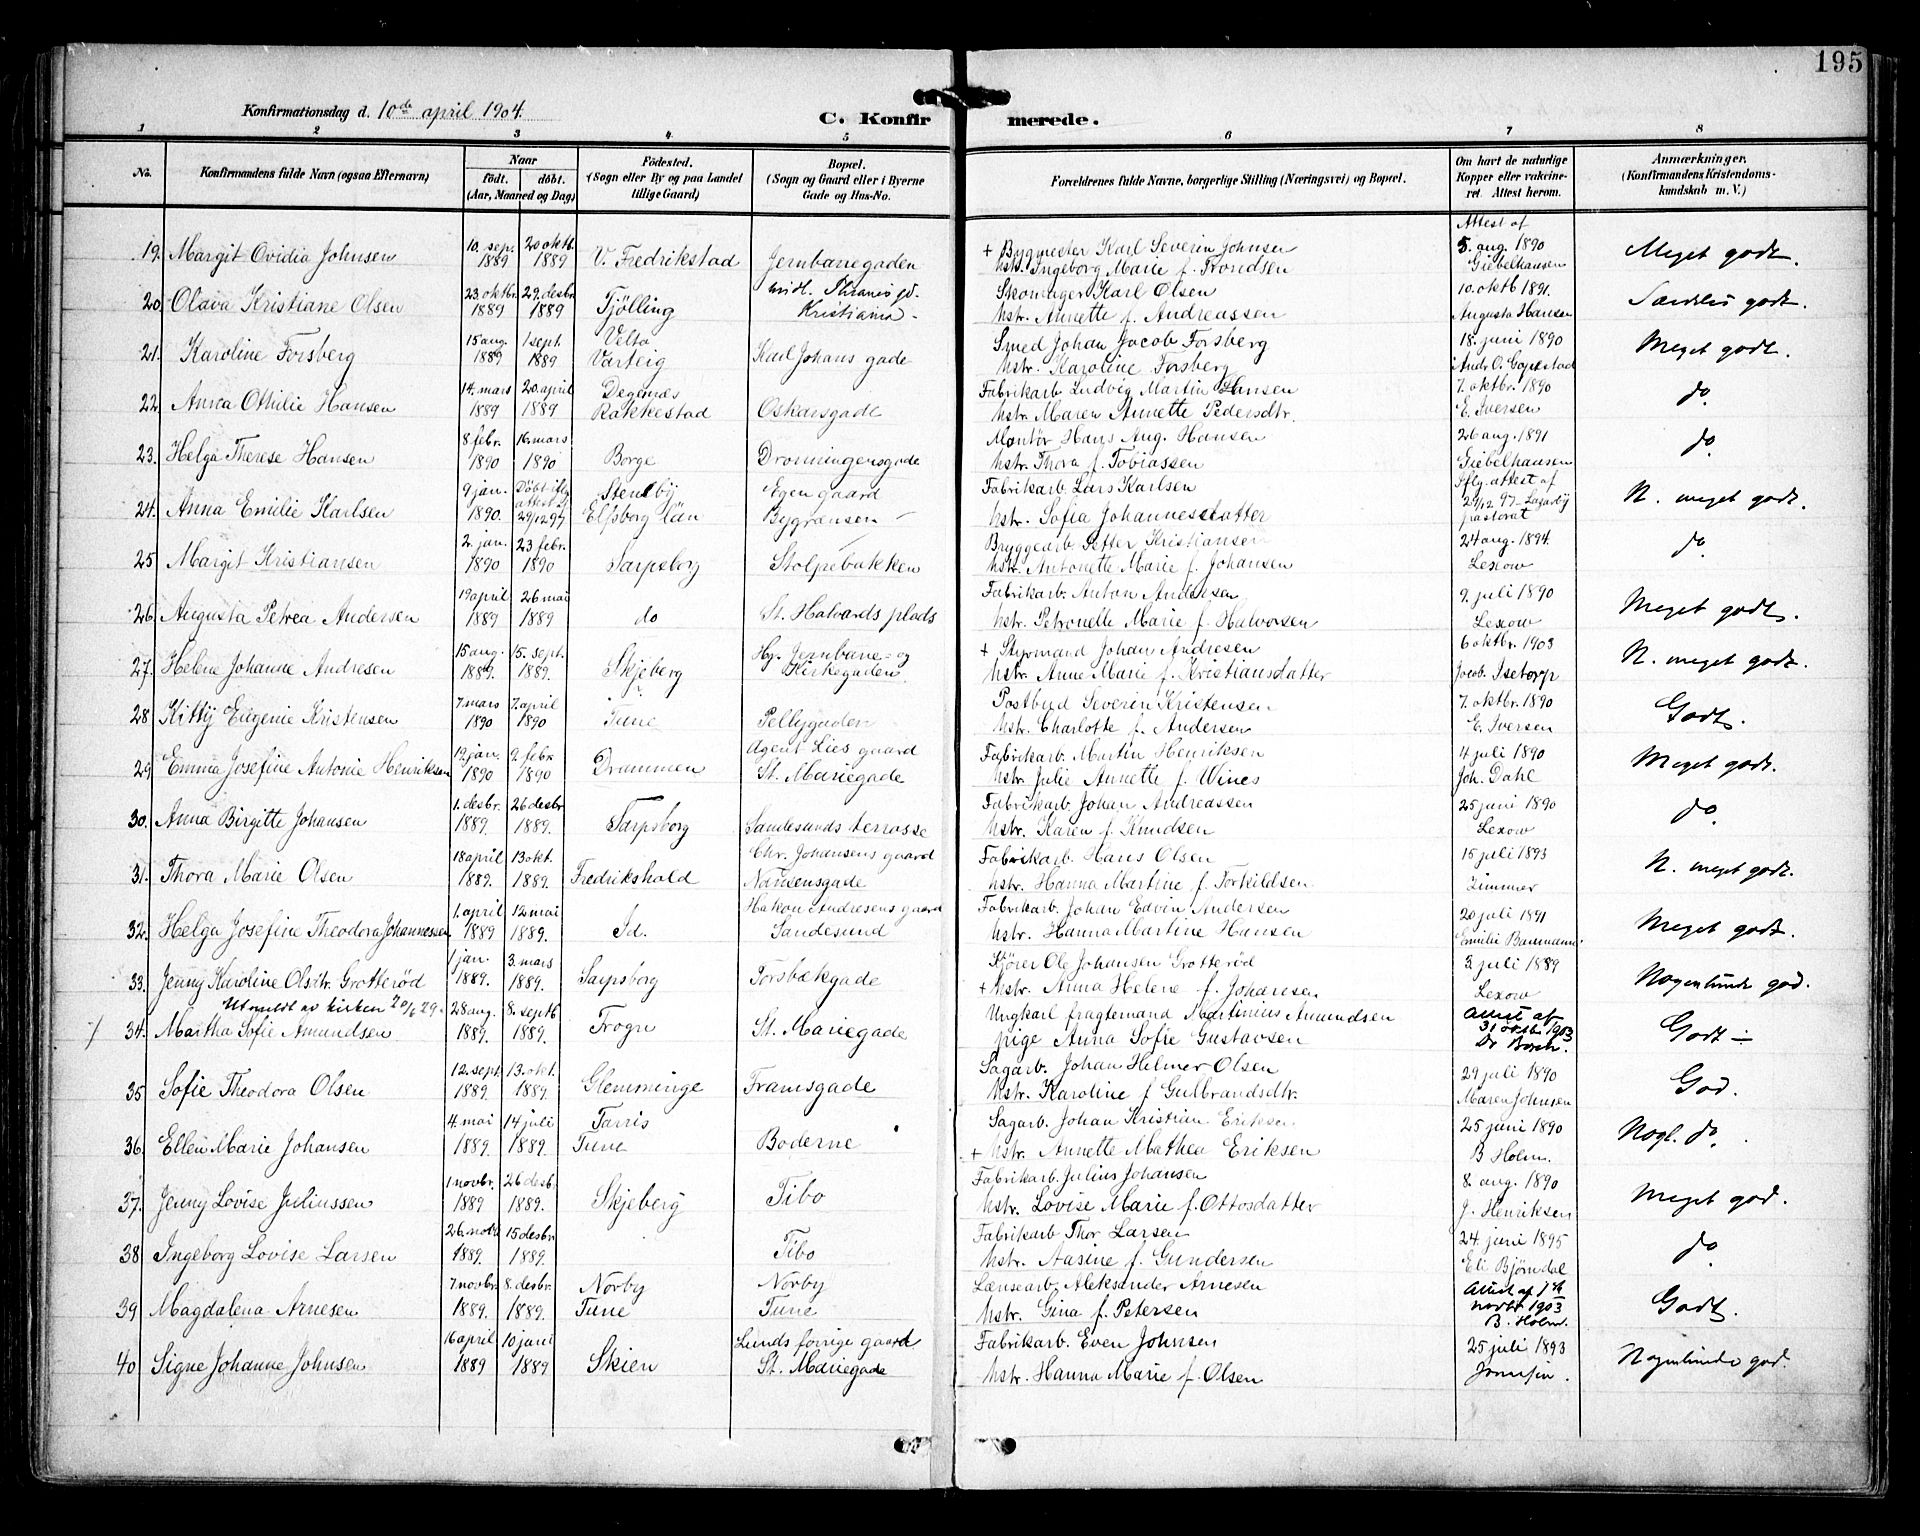 195
Konfirmationsdag d. 10de april 1904.
C. Konfirmerede.
1 2 3 4 5 6 7 8
No.
Konfirmandens fulde Navn (ogsaa Efternavn)
Naar
født. døbt.
(Aar, Maaned og Dag)
Födested.
(Sogn eller By og paa Landet tillige Gaard)
Bopæl.
(Sogn og Gaard eller i Byerne Gade og Hus-No.
Forældrenes fulde Navne, borgerlige Stilling (Næringsvei) og Bopæl.
Om havt de naturlige Kopper eller vaccineret. Attest herom.
Anmærkninger.
(Konfirmandens Kristendomskundskab m. V.)
19. Margit Ovidia Johnsen 10. sep. 1889 20 oktb. 1889 V. Fredrikstad Jernbanegaden + Bygmester Karl Severin Johnsen hstr. Ingeborg Marie f. Trondsen Attest af 5. aug. 1890 Giebelhausen Meget godt.
20. Olava Kristiane Olsen 23. oktbr. 1889 29. desbr. 1889 Tjølling Kristiania Skomager Karl Olsen hstr. Annette f. Andreassen 10. oktb 1891. Augusta Hansen Særdeles godt.
21. Karoline Forsberg 15 aug. 1889 1 sept. 1889 Velta Varteig Karl Johans gade Smed Johan Jacob Forsberg hstr. Karoline Forsberg 18. juni 1890 Meget godt.
22. Anna Othilie Hansen 14. mars 1889 20. april 1889 Degernes Rakkestad Oskarsgade Fabrikarb. Ludvig Martin Hansen hstr. Maren Annette Pedersdtr. 7. oktbr. 1890 E. Iversen do.
23. Helga Therese Hansen 8 febr. 1890 16. mars 1890 Borge Dronningensgade Montör Hans Aug. Hansen hstr. Thora f. Tobiassen 26 aug. 1891 Giebelhausen do.
24. Anna Emilie Karlsen 9 jan. 1890. Døbt iflg. attest af 29/12 97 Stenby Elfsborg län Egen gaard Bygrænsen Fabrikarb. Lars Karlsen hstr. Sofia Johannesdatter Iflg. attest af 29/12 97. pastorat N. meget godt.
25 Margit Kristiansen 2. jan. 1890 23 febr. 1890 Sarpsborg Stolpebakken Bryggearb. Petter Kristiansen hstr. Antonette Marie f. Johansen 24 aug. 1894. Lexow do.
26. Augusta Petrea Andersen 19 april 1889 26 mai 1889 do St. Halvards plads Fabrikarb. Anton Andersen hstr. Petronelle Marie f. Halvorsen 9. juli 1890 Lexow Meget godt.
27. Helene Johanne Andresen 15 aug. 1889. 15. sept. 1889. Skjeberg Hj. Jernbane- og Kirkegaden + Styrmand Johan Andresen hstr. Anne Marie f. Kristiansdatter 6 oktbr. 1903 Jacob. Isetorp N. meget godt.
28 Kitty Eugenie Kristensen 7 mars 1890 7. april 1890 Tune Pellygaden Postbud Severin Kristensen hstr. Charlotte f. Andersen 7. oktbr. 1890 E. Iversen Godt.
29 Emma Josefine Antonie Henriksen 12 jan. 1890 9. febr. 1890 Drammen Agent Lies gaard St. Mariegade Fabrikarb. Martin Henriksen hstr. Julie Annette f. Wines 4 juli 1890 Joh. Dahl Meget godt.
30. Anna Birgitte Johansen 1. desbr. 1889. 26 desbr 1889. Sarpsborg Sandesunds terrasse Fabrikarb. Johan Andreassen hstr. Karen f. Knudsen 25 juni 1890 Lexow do.
31. Thora Marie Olsen 18 april 1889. 13 okt. 1889. Fredrikshald Chr. Johansens gaard Nansensgade Fabrikarb. Hans Olsen hstr. Hanna Martine f. Torkildsen 15 juli 1893 Zimmer N. meget godt.
32. Helga Josefine Theodora Johannessen 1. april 1889 12 mai 1889. Id. Hakon Andresens gaard Sandesund Fabrikarb. Johan Edvin Andersen hstr. Hanna Martine Hansen 20 juli 1891 Emilie Meget godt.
33. Jenny Karoline Olsdtr. Grotteröd 1 jan. 1889. 3. mars 1889. Sarpsborg Torsbækgade Kjörer Ole Johansen Grotteröd + hstr. Anna Helene f. Johansen 3. juli 1889 Lexow Nogenlunde god.
Utmeldt av kirken 20/6 29.
34. Martha Sofie Amundsen 28 aug. 1889. 8. septb 1889. Trogn St. Mariegade Ungkarl fragtemand Martinius Amundsen pige Anna Sofie Gustavsen Attest af 31 oktbr 1903 Dr Borch. Godt
35 Sofie Theodora Olsen 12. sept. 1889 13. okt. 1889. Glemminge Framsgade Sagarb. Johan Helmer Olsen hstr. Karoline f Gulbrandsdtr. 29 juli 1890 Maren Johnsen God.
36. Ellen Marie Johansen 4 mai 1889. 14 juli 1889. Tarris Tune Boderne Sagarb. Johan Kristian Eriksen + hstr. Annette Mathea Eriksen 25 juni 1890 B Holm. Nogl. do.
37. Jenny Lovise Juliussen 1 novbr. 1889 26 desb. 1889. Skjeberg Tibo Fabrikarb. Julius Johansen hstr. Lovise Marie f. Ottosdatter 8. aug. 1890 J. Henriksen Meget god.
38 Ingeborg Lovise Larsen 26. novb 1889. 15 desbr 1889. Tibo Fabrikarb Thor Larsen hstr. Aasine f. Gundersen 24. juni 1895 Eli Bjørndal do.
39 Magdalena Arnesen 7 novbr. 1889. 8. desbr. 1889. Norby Tune Norby Tune Lænsearb. Aleksander Arnesen hstr. Gina f. Petersen Attest af novbr 1903 B. Holm. Godt.
40 Signe Johanne Johnsen 16 april 1889 10 juni 1889 Skien Lunds forrige gaard St. Mariegade Fabrikarb. Even Johnsen hstr. Hanna Marie f. Olsen 25 juli 1893 Nogenlunde god.